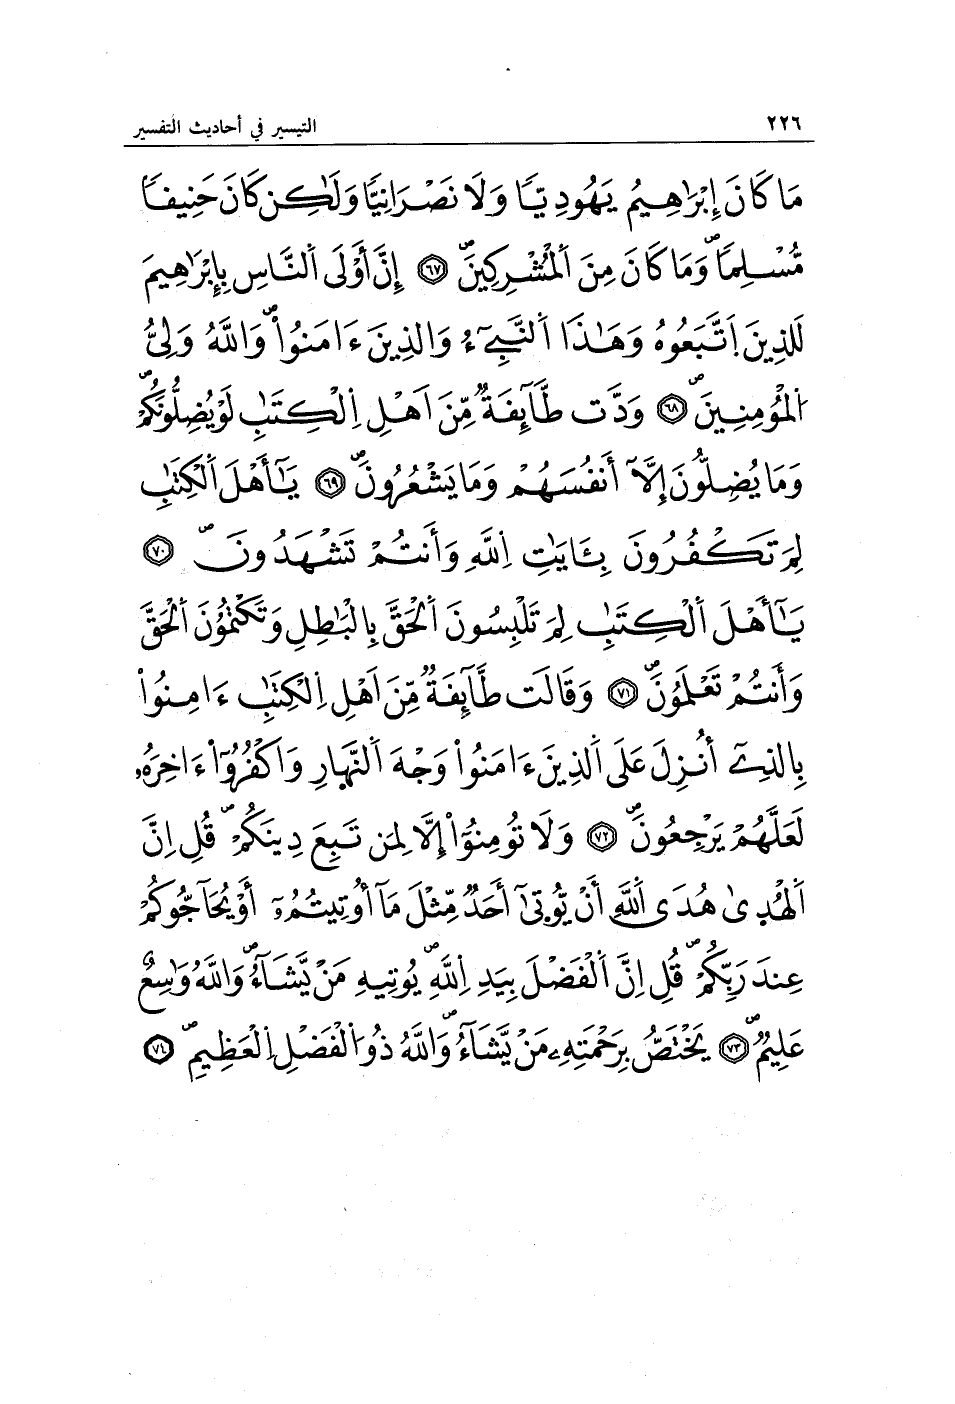 ٢٢٦ التيسير في أحاديث التفسير
مَا كَانَ إِبْرَٰهِيمُ يَهُودِيّاً وَلَا نَصْرَانِيّاً وَلَٰكِن كَانَ حَنِيفاً
مُّسْلِماًۖ وَمَا كَانَ مِنَ اَ۬لْمُشْرِكِينَۖ ٦٧ إِنَّ أَوْلَى اَ۬لنَّاسِ بِإِبْرَٰهِيمَ
لَلذِينَ اَ۪تَّبَعُوهُ وَهَٰذَا اَ۬لنَّبِيٓءُ وَالذِينَ ءَامَنُواْۖ وَاللَّهُ وَلِيُّ
اُ۬لْمُؤْمِنِينَۖ ٦٨ وَدَّت طَّآئِفَةٌ مِّنَ اَهْلِ اِ۬لْكِتَٰبِ لَوْ يُضِلُّونَكُمْۖ
وَمَا يُضِلُّونَ إِلَّآ أَنفُسَهُمْ وَمَا يَشْعُرُونَۖ ٦٩ يَٰٓأَهْلَ اَ۬لْكِتَٰبِ
لِمَ تَكْفُرُونَ بِـَٔايَٰتِ اِ۬للَّهِ وَأَنتُمْ تَشْهَدُونَۖ ٧٠
يَٰٓأَهْلَ اَ۬لْكِتَٰبِ لِمَ تَلْبِسُونَ اَ۬لْحَقَّ بِالْبَٰطِلِ وَتَكْتُمُونَ اَ۬لْحَقَّ
وَأَنتُمْ تَعْلَمُونَۖ ٧١ وَقَالَت طَّآئِفَةٌ مِّنَ اَهْلِ اِ۬لْكِتَٰبِ ءَامِنُواْ
بِالذِےٓ أُنزِلَ عَلَى اَ۬لذِينَ ءَامَنُواْ وَجْهَ اَ۬لنَّهَارِ وَاكْفُرُوٓاْ ءَاخِرَهُۥ
لَعَلَّهُمْ يَرْجِعُونَۖ ٧٢ وَلَا تُومِنُوٓاْ إِلَّا لِمَن تَبِعَ دِينَكُمْۖ قُلِ اِنَّ
اَ۬لْهُد۪ىٰ هُدَى اَ۬للَّهِ أَنْ يُّوتَىٰٓ أَحَدٌ مِّثْلَ مَآ أُوتِيتُمُۥٓ أَوْ يُحَآجُّوكُمْ
عِندَ رَبِّكُمْۖ قُلِ اِنَّ اَ۬لْفَضْلَ بِيَدِ اِ۬للَّهِۖ يُوتِيهِ مَنْ يَّشَآءُۖ وَاللَّهُ وَٰسِعٌ
عَلِيمٌۖ ٧٣ يَخْتَصُّ بِرَحْمَتِهِۦ مَنْ يَّشَآءُۖ وَاللَّهُ ذُو اُ۬لْفَضْلِ اِ۬لْعَظِيمِۖ ٧٤